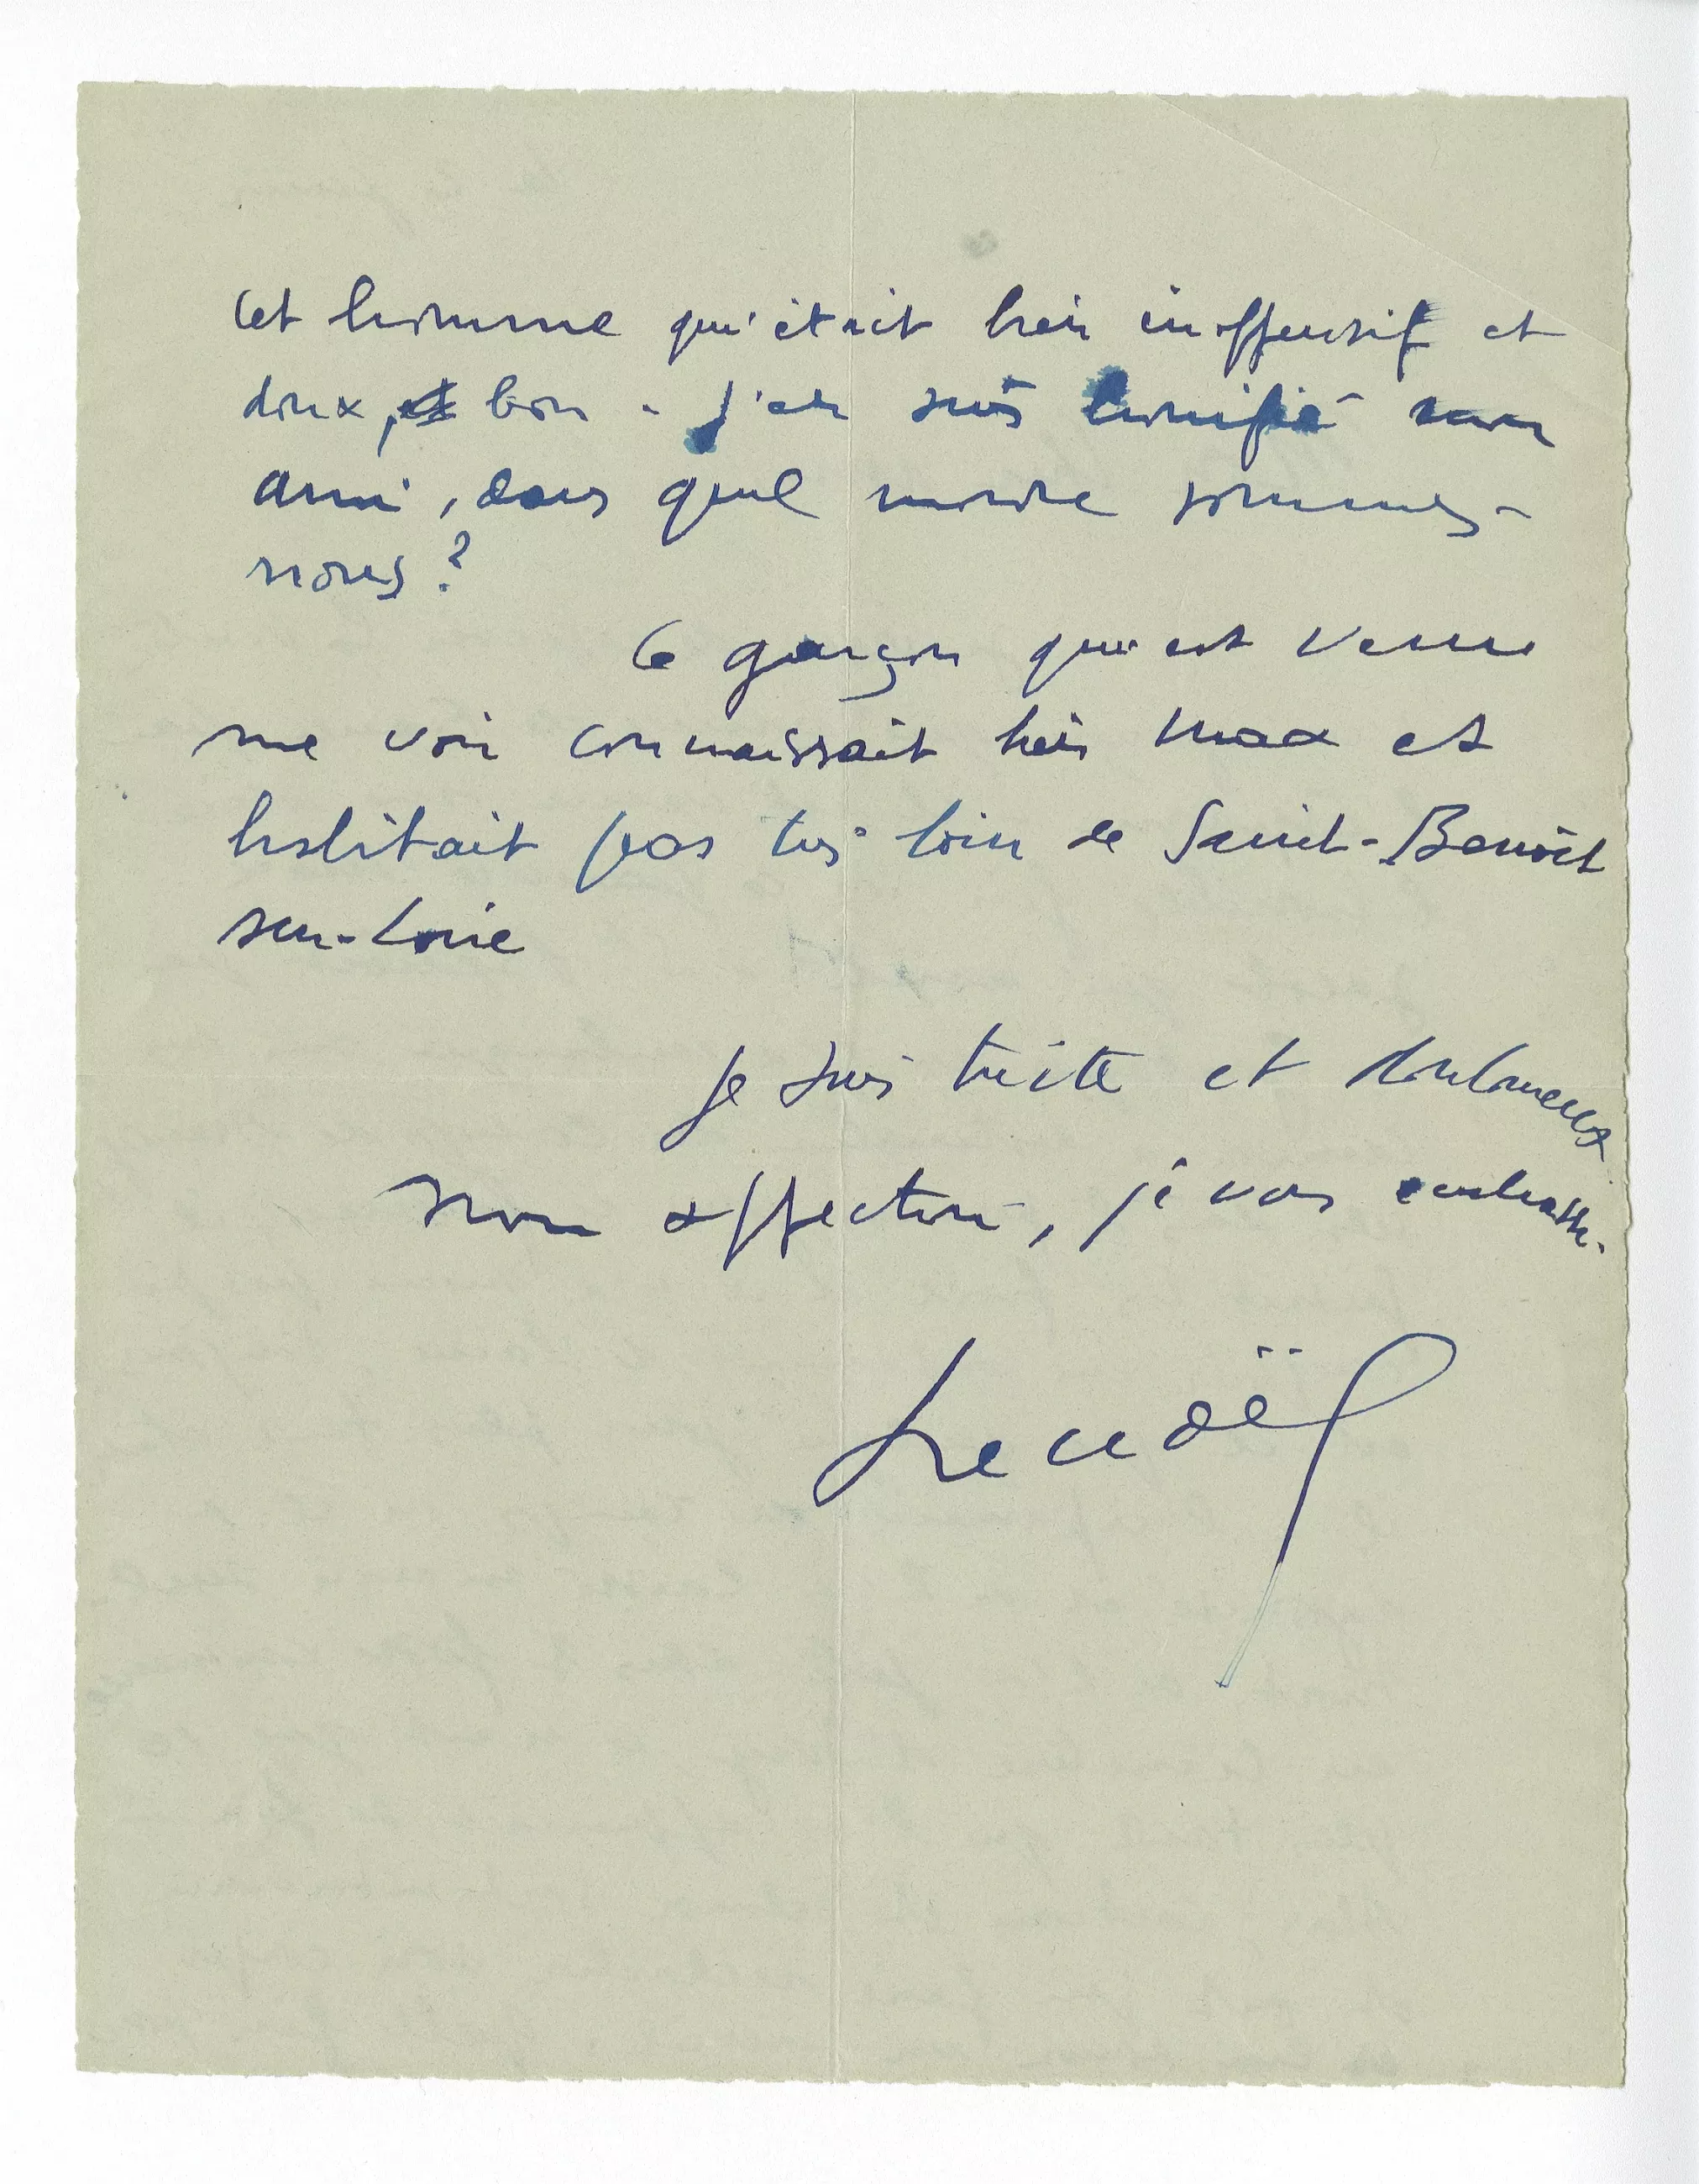 Cet homme qui était bien inoffensif et
doux, et bon - j'en suis terrifié mon
ami, dans quel monde sommes-
nous?
Ce garçon qui est venu
me voir connaissait bien Max et
habitait pas très loin de Saint-Benoît
sur-Loire
Je suis triste et douloureux
mon affection, je vous embrasse.